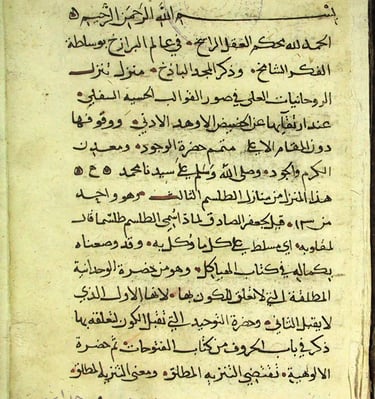 بسم الله الرحمن الرحيم
الحمد لله محكم العقل الراسخ في عالم البرازخ بوساطة
الفكر الشامخ وذكر المجد الباذخ منزل تنزل
الروحانيات العلى في صور القوالب الحسية السفلى
عند ارتقائها عن الحضيض الاوهد الادنى ووقوفها
دون المقام الاعلى متمم حضرة الوجود ومعدن
الكرم والجود وصلى الله وسلم على سيدنا محمد
هذا المنزل من منازل الطلاسم الثالث وهو واحد
من ١٣ قيل لجعفر الصادق لماذا سمي الطلسم طلسما قال
لمقلوبه اي مسلط على كل ما وكل به وقد وصفناه
بكماله في كتاب الهياكل وهو من حضرة الوحدانية
المطلقة التي لا تعلق للكون بها لانها الاول الذي
لا يقبل الثاني وحضرة التوحيد التي تقبل الكون لتعلقه بها
ذكر في باب الحروف من كتاب الفتوحات ثم حضرة
الالوهية تقتضي التنزيه المطلق ومعنى التنزيه المطلق